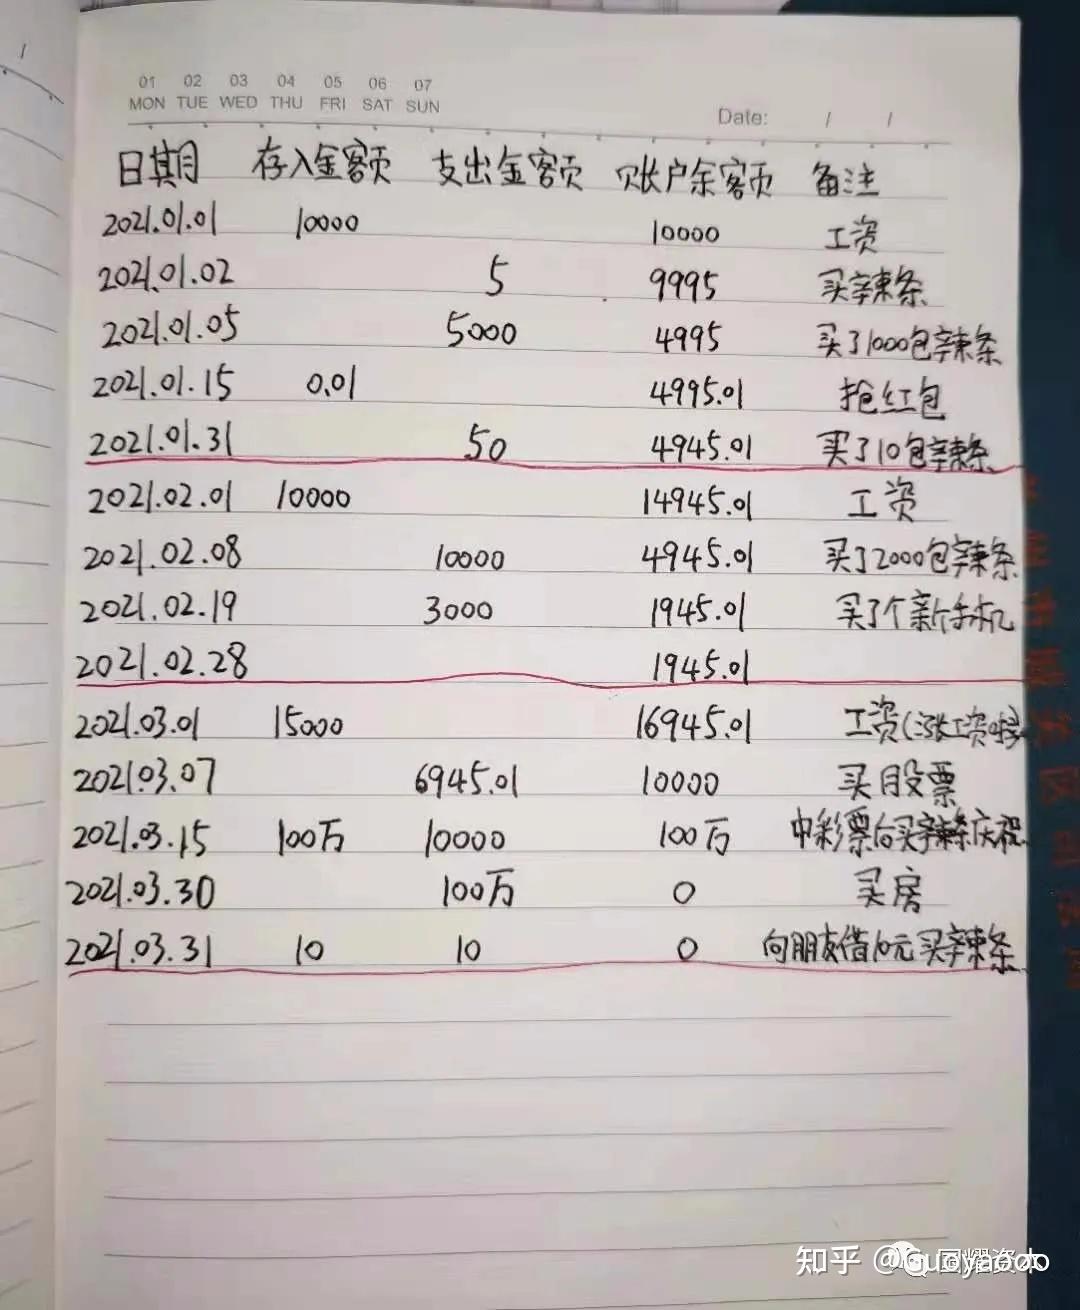 01 02 03 04 05 06 07
MON TUE WED THU FRI SAT SUN
Date: / /
日期 存入金额 支出金额 账户余额 备注
2021.01.01 10000 10000 工资
2021.01.02 5 9995 买辣条
2021.01.05 5000 4995 买了1000包辣条
2021.01.15 0.01 4995.01 抢红包
2021.01.31 50 4945.01 买了10包辣条
2021.02.01 10000 14945.01 工资
2021.02.08 10000 4945.01 买了2000包辣条
2021.02.19 3000 1945.01 买了个新手机
2021.02.28 1945.01
2021.03.01 15000 16945.01 工资(涨工资啦
2021.03.07 6945.01 10000 买股票
2021.03.15 100万 10000 100万 中彩票后买辣条庆祝
2021.03.30 100万 0 买房
2021.03.31 10 10 0 向朋友借10元买辣条
知乎 @Guoyaooo